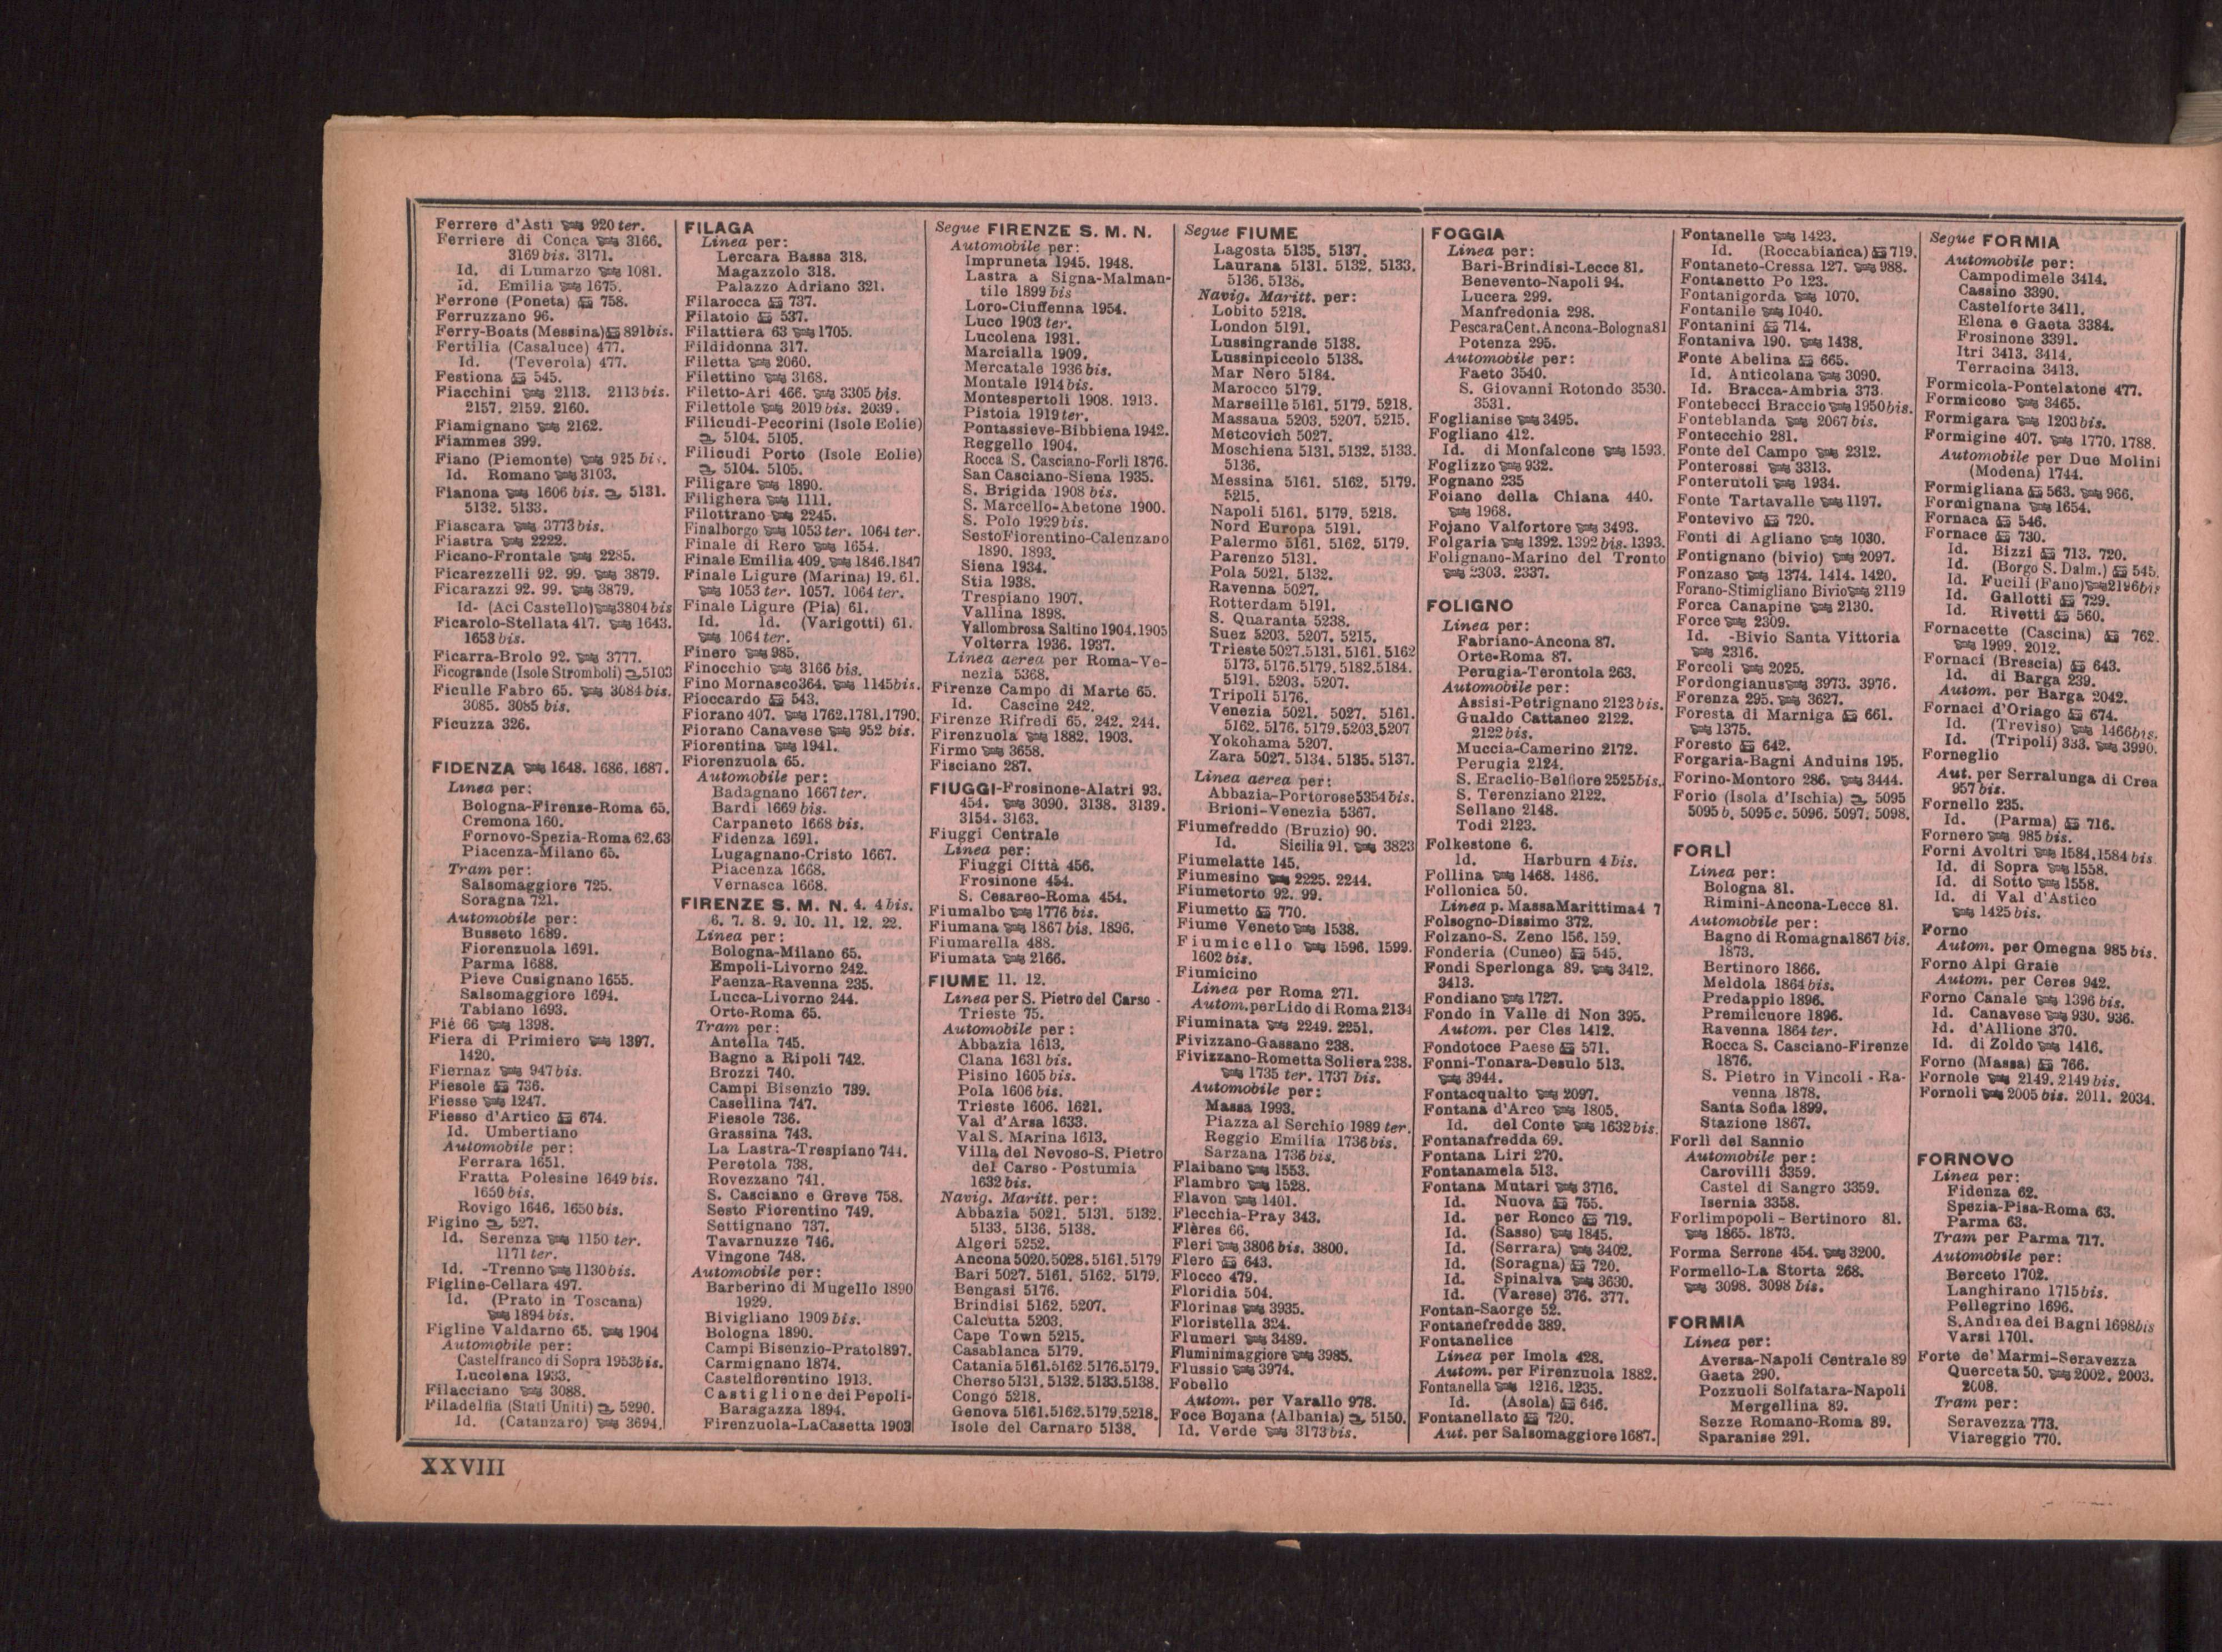 Ferrere d'Asti 920 ter.
Ferriere di Conca 3166.
3169 bis. 3171.
Id. di Lumarzo 1081.
Id. Emilia 1675.
Ferrone (Poneta) 758.
Ferruzzano 96.
Ferry-Boats (Messina) 891 bis.
Fertilia (Casaluce) 477.
Id. (Teverola) 477.
Festiona 545.
Fiacchini 2113. 2113 bis.
2157. 2159. 2160.
Fiamignano 2162.
Fiammes 399.
Fiano (Piemonte) 925 bis.
Id. Romano 3103.
Fianona 1606 bis. 5131.
5132. 5133.
Fiascara 3773 bis.
Fiastra 2222.
Ficano-Frontale 2285.
Ficarezzelli 92. 99. 3879.
Ficarazzi 92. 99. 3879.
Id- (Aci Castello) 3804 bis
Ficarolo-Stellata 417. 1643.
1653 bis.
Ficarra-Brolo 92. 3777.
Ficogrande (Isole Stromboli) 5103
Ficulle Fabro 65. 3084 bis.
3085. 3085 bis.
Ficuzza 326.
FIDENZA 1648. 1686. 1687.
Linea per:
Bologna-Firenze-Roma 65.
Cremona 160.
Fornovo-Spezia-Roma 62.63
Piacenza-Milano 65.
Tram per:
Salsomaggiore 725.
Soragna 721.
Automobile per:
Busseto 1689.
Fiorenzuola 1691.
Parma 1688.
Pieve Cusignano 1655.
Salsomaggiore 1694.
Tabiano 1693.
Fié 66 1398.
Fiera di Primiero 1397.
1420.
Fiernaz 947 bis.
Fiesole 736.
Fiesse 1247.
Fiesso d'Artico 674.
Id. Umbertiano
Automobile per:
Ferrara 1651.
Fratta Polesine 1649 bis.
1650 bis.
Rovigo 1646. 1650 bis.
Figino 527.
Id. Serenza 1150 ter.
1171 ter.
Id. -Trenno 1130 bis.
Figline-Cellara 497.
Id. (Prato in Toscana)
1894 bis.
Figline Valdarno 65. 1904
Automobile per:
Castelfranco di Sopra 1953 bis.
Lucolena 1933.
Filacciano 3088.
Filadelfia (Stati Uniti) 5290.
Id. (Catanzaro) 3694.
FILAGA
Linea per:
Lercara Bassa 318.
Magazzolo 318.
Palazzo Adriano 321.
Filarocca 737.
Filatoio 537.
Filattiera 63 1705.
Fildidonna 317.
Filetta 2060.
Filettino 3168.
Filetto-Ari 466. 3305 bis.
Filettole 2019 bis. 2039.
Filicudi-Pecorini (Isole Eolie)
5104. 5105.
Filicudi Porto (Isole Eolie)
5104. 5105.
Filigare 1890.
Filighera 1111.
Filottrano 2245.
Finalborgo 1053 ter. 1064 ter.
Finale di Rero 1654.
Finale Emilia 409. 1846.1847
Finale Ligure (Marina) 19. 61.
1053 ter. 1057. 1064 ter.
Finale Ligure (Pia) 61.
Id. Id. (Varigotti) 61.
1064 ter.
Finero 985.
Finocchio 3166 bis.
Fino Mornasco 364. 1145 bis.
Fioccardo 543.
Fiorano 407. 1762.1781.1790.
Fiorano Canavese 952 bis.
Fiorentina 1941.
Fiorenzuola 65.
Automobile per:
Badagnano 1667 ter.
Bardi 1669 bis.
Carpaneto 1668 bis.
Fidenza 1691.
Lugagnano-Cristo 1667.
Piacenza 1668.
Vernasca 1668.
FIRENZE S. M. N. 4. 4 bis.
6. 7. 8. 9. 10. 11. 12. 22.
Linea per:
Bologna-Milano 65.
Empoli-Livorno 242.
Faenza-Ravenna 235.
Lucca-Livorno 244.
Orte-Roma 65.
Tram per:
Antella 745.
Bagno a Ripoli 742.
Brozzi 740.
Campi Bisenzio 739.
Casellina 747.
Fiesole 736.
Grassina 743.
La Lastra-Trespiano 744.
Peretola 738.
Rovezzano 741.
S. Casciano e Greve 758.
Sesto Fiorentino 749.
Settignano 737.
Tavarnuzze 746.
Vingone 748.
Automobile per:
Barberino di Mugello 1890
1929.
Bivigliano 1909 bis.
Bologna 1890.
Campi Bisenzio-Prato 1897.
Carmignano 1874.
Castelfiorentino 1913.
Castiglione dei Pepoli-
Baragazza 1894.
Firenzuola-La Casetta 1903
Segue FIRENZE S. M. N.
Automobile per:
Impruneta 1945. 1948.
Lastra a Signa-Malman-
tile 1899 bis
Loro-Ciuffenna 1954.
Luco 1903 ter.
Lucolena 1931.
Marcialla 1909.
Mercatale 1936 bis.
Montale 1914 bis.
Montespertoli 1908. 1913.
Pistoia 1919 ter.
Pontassieve-Bibbiena 1942.
Reggello 1904.
Rocca S. Casciano-Forlì 1876.
San Casciano-Siena 1935.
S. Brigida 1908 bis.
S. Marcello-Abetone 1900.
S. Polo 1929 bis.
Sesto Fiorentino-Calenzano
1890. 1893.
Siena 1934.
Stia 1938.
Trespiano 1907.
Vallina 1898.
Vallombrosa Saltino 1904.1905
Volterra 1936. 1937.
Linea aerea per Roma-Ve-
nezia 5368.
Firenze Campo di Marte 65.
Id. Cascine 242.
Firenze Rifredi 65. 242. 244.
Firenzuola 1882. 1903.
Firmo 3658.
Fisciano 287.
FIUGGI-Frosinone-Alatri 93.
454. 3090. 3138. 3139.
3154. 3163.
Fiuggi Centrale
Linea per:
Fiuggi Città 456.
Frosinone 454.
S. Cesareo-Roma 454.
Fiumalbo 1776 bis.
Fiumana 1867 bis. 1896.
Fiumarella 488.
Fiumata 2166.
FIUME 11. 12.
Linea per S. Pietro del Carso -
Trieste 75.
Automobile per:
Abbazia 1613.
Clana 1631 bis.
Pisino 1605 bis.
Pola 1606 bis.
Trieste 1606. 1621.
Val d'Arsa 1633.
Val S. Marina 1613.
Villa del Nevoso-S. Pietro
del Carso - Postumia
1632 bis.
Navig. Maritt. per:
Abbazia 5021. 5131. 5132.
5133. 5136. 5138.
Algeri 5252.
Ancona 5020.5028.5161.5179
Bari 5027. 5161. 5162. 5179.
Bengasi 5176.
Brindisi 5162. 5207.
Calcutta 5203.
Cape Town 5215.
Casablanca 5179.
Catania 5161.5162 5176.5179.
Cherso 5131. 5132. 5133.5138.
Congo 5218.
Genova 5161.5162.5179.5218.
Isole del Carnaro 5138.
Segue FIUME
Lagosta 5135. 5137.
Laurana 5131. 5132. 5133.
5136. 5138.
Navig. Maritt. per:
Lobito 5218.
London 5191.
Lussingrande 5138.
Lussinpiccolo 5138.
Mar Nero 5184.
Marocco 5179.
Marseille 5161. 5179. 5218.
Massaua 5203. 5207. 5215.
Metcovich 5027.
Moschiena 5131. 5132. 5133.
5136.
Messina 5161. 5162. 5179.
5215.
Napoli 5161. 5179. 5218.
Nord Europa 5191.
Palermo 5161. 5162. 5179.
Parenzo 5131.
Pola 5021. 5132.
Ravenna 5027.
Rotterdam 5191.
S. Quaranta 5238.
Suez 5203. 5207. 5215.
Trieste 5027.5131. 5161. 5162
5173. 5176.5179. 5182.5184.
5191. 5203. 5207.
Tripoli 5176.
Venezia 5021. 5027. 5161.
5162. 5176. 5179.5203.5207
Yokohama 5207.
Zara 5027. 5134. 5135. 5137.
Linea aerea per:
Abbazia-Portorose 5354 bis.
Brioni-Venezia 5367.
Fiumefreddo (Bruzio) 90.
Id. Sicilia 91. 3823
Fiumelatte 145.
Fiumesino 2225. 2244.
Fiumetorto 92. 99.
Fiumetto 770.
Fiume Veneto 1538.
Fiumicello 1596. 1599.
1602 bis.
Fiumicino
Linea per Roma 271.
Autom. per Lido di Roma 2134
Fiuminata 2249. 2251.
Fivizzano-Gassano 238.
Fivizzano-Rometta Soliera 238.
1735 ter. 1737 bis.
Automobile per:
Massa 1993.
Piazza al Serchio 1989 ter.
Reggio Emilia 1736 bis.
Sarzana 1736 bis.
Flaibano 1553.
Flambro 1528.
Flavon 1401.
Flecchia-Pray 343.
Flères 66.
Fleri 3806 bis. 3800.
Flero 643.
Flocco 479.
Floridia 504.
Florinas 3935.
Floristella 324.
Flumeri 3489.
Fluminimaggiore 3985.
Flussio 3974.
Fobello
Autom. per Varallo 978.
Foce Bojana (Albania) 5150.
Id. Verde 3173 bis.
FOGGIA
Linea per:
Bari-Brindisi-Lecce 81.
Benevento-Napoli 94.
Lucera 299.
Manfredonia 298.
Pescara Cent. Ancona-Bologna 81
Potenza 295.
Automobile per:
Faeto 3540.
S. Giovanni Rotondo 3530.
3531.
Foglianise 3495.
Fogliano 412.
Id. di Monfalcone 1593.
Foglizzo 932.
Fognano 235
Foiano della Chiana 440.
1968.
Fojano Valfortore 3493.
Folgaria 1392. 1392 bis. 1393.
Folignano-Marino del Tronto
2303. 2337.
FOLIGNO
Linea per:
Fabriano-Ancona 87.
Orte-Roma 87.
Perugia-Terontola 263.
Automobile per:
Assisi-Petrignano 2123 bis.
Gualdo Cattaneo 2122.
2122 bis.
Muccia-Camerino 2172.
Perugia 2124.
S. Eraclio-Belfiore 2525 bis.
S. Terenziano 2122.
Sellano 2148.
Todi 2123.
Folkestone 6.
Id. Harburn 4 bis.
Follina 1468. 1486.
Follonica 50.
Linea p. Massa Marittima 4 7
Folsogno-Dissimo 372.
Folzano-S. Zeno 156. 159.
Fonderia (Cuneo) 545.
Fondi Sperlonga 89. 3412.
3413.
Fondiano 1727.
Fondo in Valle di Non 395.
Autom. per Cles 1412.
Fondotoce Paese 571.
Fonni-Tonara-Desulo 513.
3944.
Fontacqualto 2097.
Fontana d'Arco 1805.
Id. del Conte 1632 bis.
Fontanafredda 69.
Fontana Liri 270.
Fontanamela 513.
Fontana Mutari 3716.
Id. Nuova 755.
Id. per Ronco 719.
Id. (Sasso) 1845.
Id. (Serrara) 3402.
Id. (Soragna) 720.
Id. Spinalva 3630.
Id. (Varese) 376. 377.
Fontan-Saorge 52.
Fontanefredde 389.
Fontanelice
Linea per Imola 428.
Autom. per Firenzuola 1882.
Fontanella 1216. 1235.
Id. (Asola) 646.
Fontanellato 720.
Aut. per Salsomaggiore 1687.
Fontanelle 1423.
Id. (Roccabianca) 719.
Fontaneto-Cressa 127. 988.
Fontanetto Po 123.
Fontanigorda 1070.
Fontanile 1040.
Fontanini 714.
Fontaniva 190. 1438.
Fonte Abelina 665.
Id. Anticolana 3090.
Id. Bracca-Ambria 373.
Fontebecci Braccio 1950 bis.
Fonteblanda 2067 bis.
Fontecchio 281.
Fonte del Campo 2312.
Fonterossi 3313.
Fonterutoli 1934.
Fonte Tartavalle 1197.
Fontevivo 720.
Fonti di Agliano 1030.
Fontignano (bivio) 2097.
Fonzaso 1374. 1414. 1420.
Forano-Stimigliano Bivio 2119
Forca Canapine 2130.
Force 2309.
Id. -Bivio Santa Vittoria
2316.
Forcoli 2025.
Fordongianus 3973. 3976.
Forenza 295. 3627.
Foresta di Marniga 661.
1375.
Foresto 642.
Forgaria-Bagni Anduins 195.
Forino-Montoro 286. 3444.
Forio (Isola d'Ischia) 5095
5095 b. 5095 c. 5096. 5097. 5098.
FORLÌ
Linea per:
Bologna 81.
Rimini-Ancona-Lecce 81.
Automobile per:
Bagno di Romagna 1867 bis.
1873.
Bertinoro 1866.
Meldola 1864 bis.
Predappio 1896.
Premilcuore 1896.
Ravenna 1864 ter.
Rocca S. Casciano-Firenze
1876.
S. Pietro in Vincoli - Ra-
venna 1878.
Santa Sofia 1899.
Stazione 1867.
Forlì del Sannio
Automobile per:
Carovilli 3359.
Castel di Sangro 3359.
Isernia 3358.
Forlimpopoli - Bertinoro 81.
1865. 1873.
Forma Serrone 454. 3200.
Formello-La Storta 268.
3098. 3098 bis.
FORMIA
Linea per:
Aversa-Napoli Centrale 89
Gaeta 290.
Pozzuoli Solfatara-Napoli
Mergellina 89.
Sezze Romano-Roma 89.
Sparanise 291.
Segue FORMIA
Automobile per:
Campodimele 3414.
Cassino 3390.
Castelforte 3411.
Elena e Gaeta 3384.
Frosinone 3391.
Itri 3413. 3414.
Terracina 3413.
Formicola-Pontelatone 477.
Formicoso 3465.
Formigara 1203 bis.
Formigine 407. 1770. 1788.
Automobile per Due Molini
(Modena) 1744.
Formigliana 563. 966.
Formignana 1654.
Fornaca 546.
Fornace 730.
Id. Bizzi 713. 720.
Id. (Borgo S. Dalm.) 545.
Id. Fucili (Fano) 2196 bis
Id. Gallotti 729.
Id. Rivetti 560.
Fornacette (Cascina) 762.
1999. 2012.
Fornaci (Brescia) 643.
Id. di Barga 239.
Autom. per Barga 2042.
Fornaci d'Oriago 674.
Id. (Treviso) 1466 bis.
Id. (Tripoli) 333. 3990.
Forneglio
Aut. per Serralunga di Crea
957 bis.
Fornello 235.
Id. (Parma) 716.
Fornero 985 bis.
Forni Avoltri 1584.1584 bis
Id. di Sopra 1558.
Id. di Sotto 1558.
Id. di Val d'Astico
1425 bis.
Forno
Autom. per Omegna 985 bis.
Forno Alpi Graie
Autom. per Ceres 942.
Forno Canale 1396 bis.
Id. Canavese 930. 936.
Id. d'Allione 370.
Id. di Zoldo 1416.
Forno (Massa) 766.
Fornole 2149. 2149 bis.
Fornoli 2005 bis. 2011. 2034.
FORNOVO
Linea per:
Fidenza 62.
Spezia-Pisa-Roma 63.
Parma 63.
Tram per Parma 717.
Automobile per:
Berceto 1702.
Langhirano 1715 bis.
Pellegrino 1696.
S. Andrea dei Bagni 1698 bis
Varsi 1701.
Forte de' Marmi-Seravezza
Querceta 50. 2002. 2003.
2008.
Tram per:
Seravezza 773.
Viareggio 770.
XXVIII